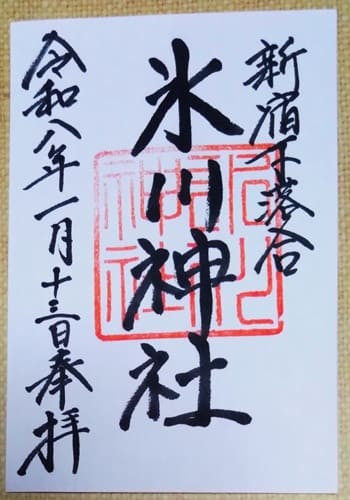 新宿下落合
氷川神社
令和八年一月十三日奉拝